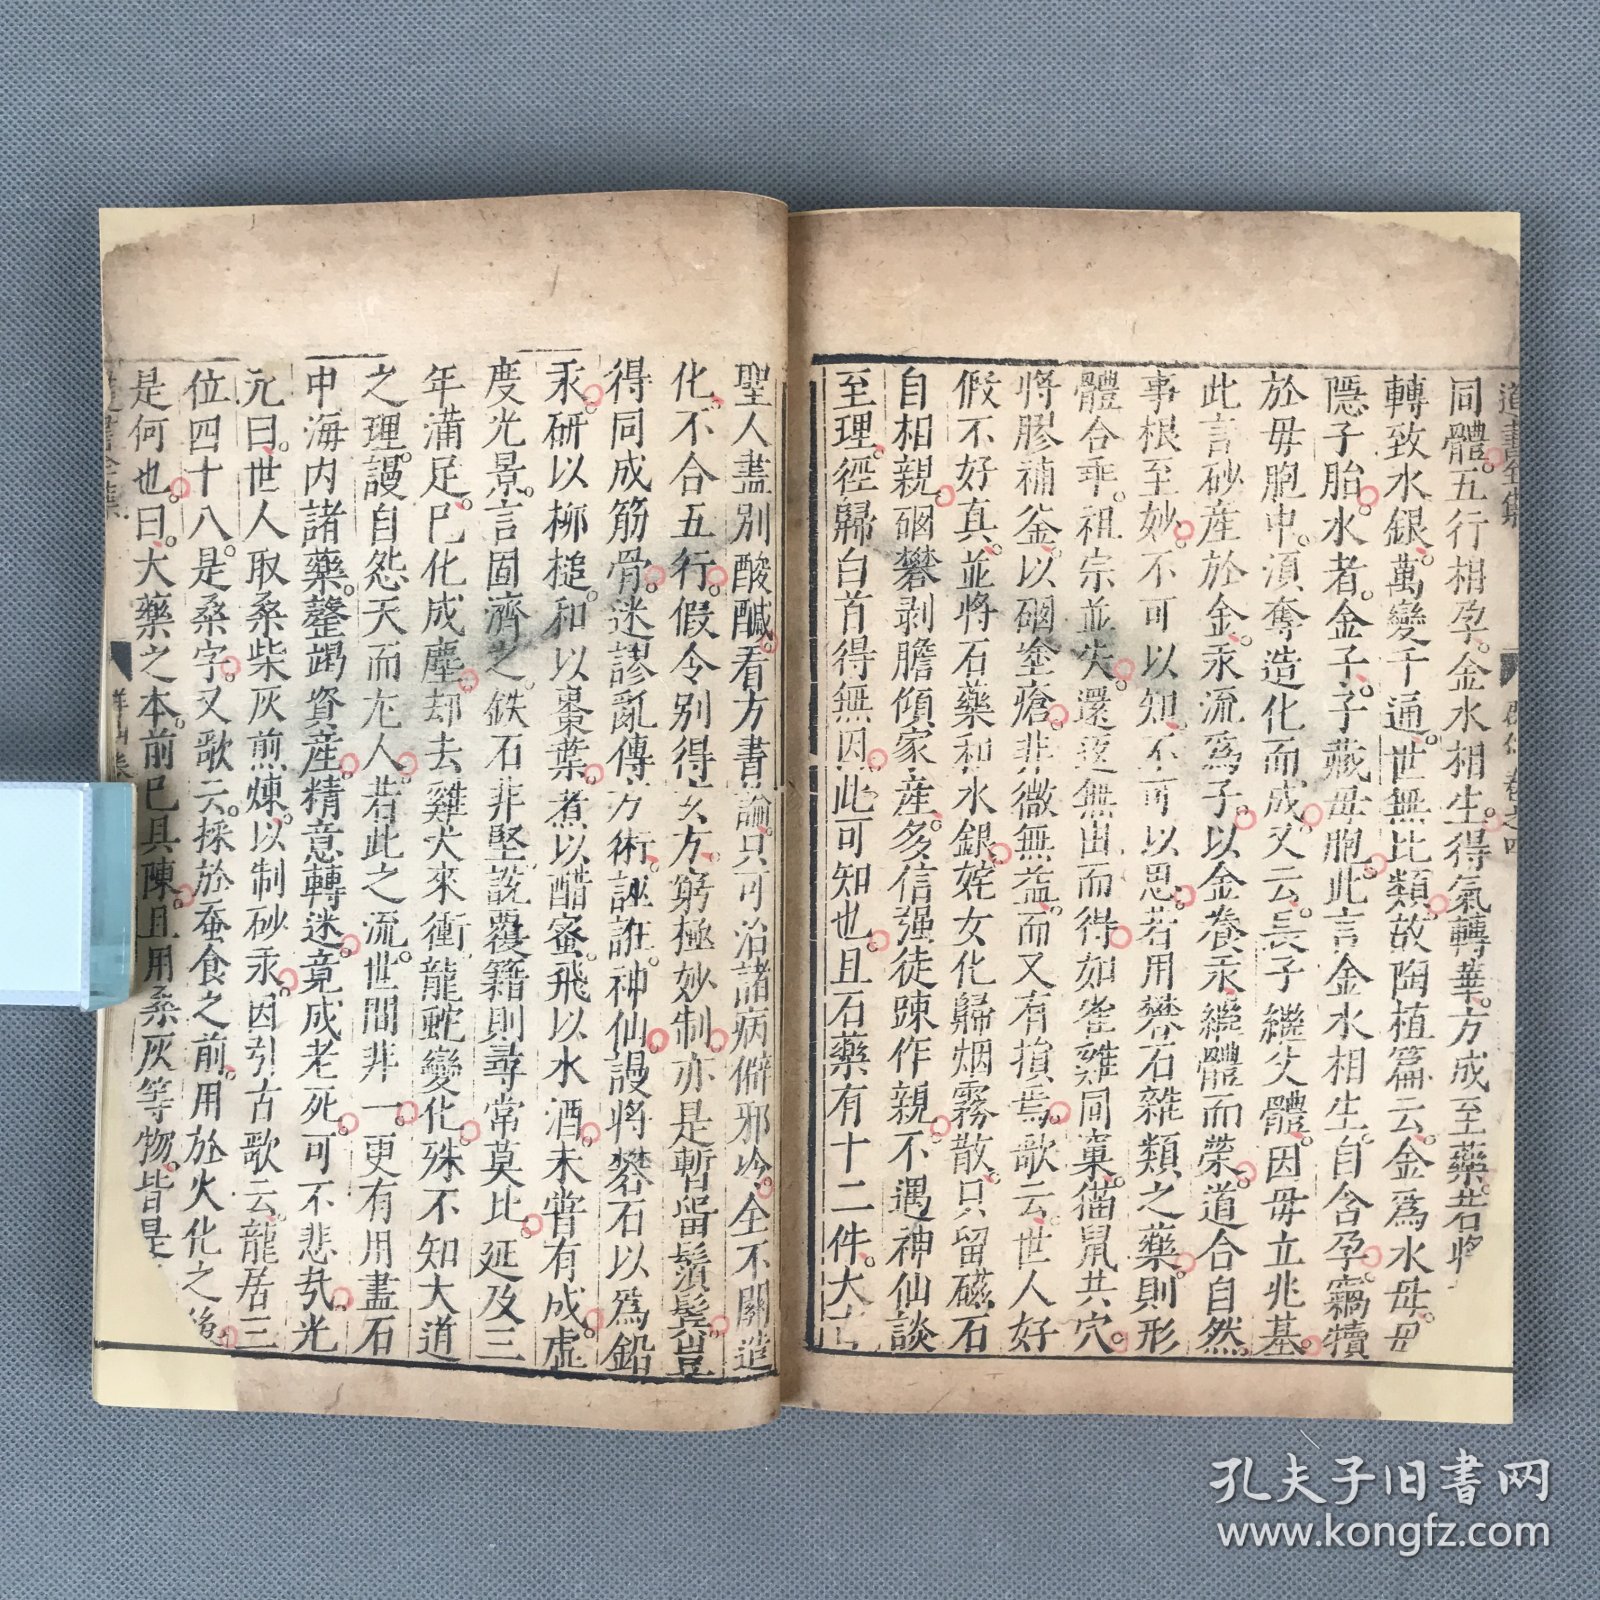 道書全集
同體五行相孕金水相生得氣轉華方成至藥若將
轉致水銀萬變千通世無比類故陶植篇云金爲水母母
隱子胎水者金子子藏母胞此言金水相生自含孕竊犢
於母胞中須奪造化而成又云長子繼父體因母立兆基
此言砂産於金汞流爲子以金養汞繼體而榮道合自然
事根至妙不可以知不可以思若用礬石雜類之藥則形
體合乖祖宗並失還返無由而得如雀雞同窠猫鼠共穴
將膠補釜以硇塗瘡非徴無益而又有損焉歌云世人好
假不好真並將石藥和水銀姹女化歸烟霧散只留磁石
自相親硇礬剥膽傾家産多信强徒踈作親不遇神仙談
至理徑歸白首得無因此可知也且石藥有十二件大
聖人盡別酸醎看方書論只可治諸病僻邪
全不關造
化不合五行假令别得玄方窮極妙制亦是暫留鬚鬓豈
得同成筋骨迷謬亂傳方術誣誑神仙謾將礬石以爲鉛
汞研以栁槌和以棗葉煮以醋蜜飛以水酒未嘗有成虚
度光景言固濟之鉄石非堅説覆籍則尋常莫比延及三
年滿足巳化成塵却去雞犬來衝龍蛇變化殊不知大道
之理謾自怨天而尤人若此之流世間非一更有用盡石
中海内諸藥罄竭資産精意轉迷竟成老死可不悲哉光
元曰世人取桑柴灰煎煉以制砂汞因引古歌云龍居三
位四十八是桑字又歌云採於蚕食之前用於火化之後
是何也曰大藥之本前巳具陳且用桑灰等物皆是